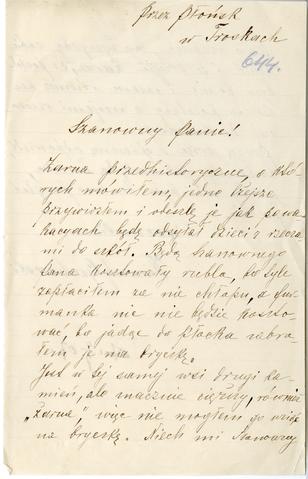 przez Płońsk
w Troskach
644.
Szanowny Panie!
Żarna przedhistoryczne, o któ-
rych mówiłem, jedno lżejsze
przywiozłem i odeszlę je jak po wa-
kacyach będę odsyłał dzieci z rzecza
mi do szkół. Będą Szanownego
Pana kosztowały rubla, bo tyle
zapłaciłem za nie chłopu, a fur-
manka nic nie będzie koszto-
wać, bo jadąc do Płocka zabra-
łem je na bryczkę.
Jest w tej samej wsi drugi ka-
mień, ale znacznie cięższy, również
„Żarna” więc nie mogłem go wziąć
na bryczkę. Niech mi Szanowny